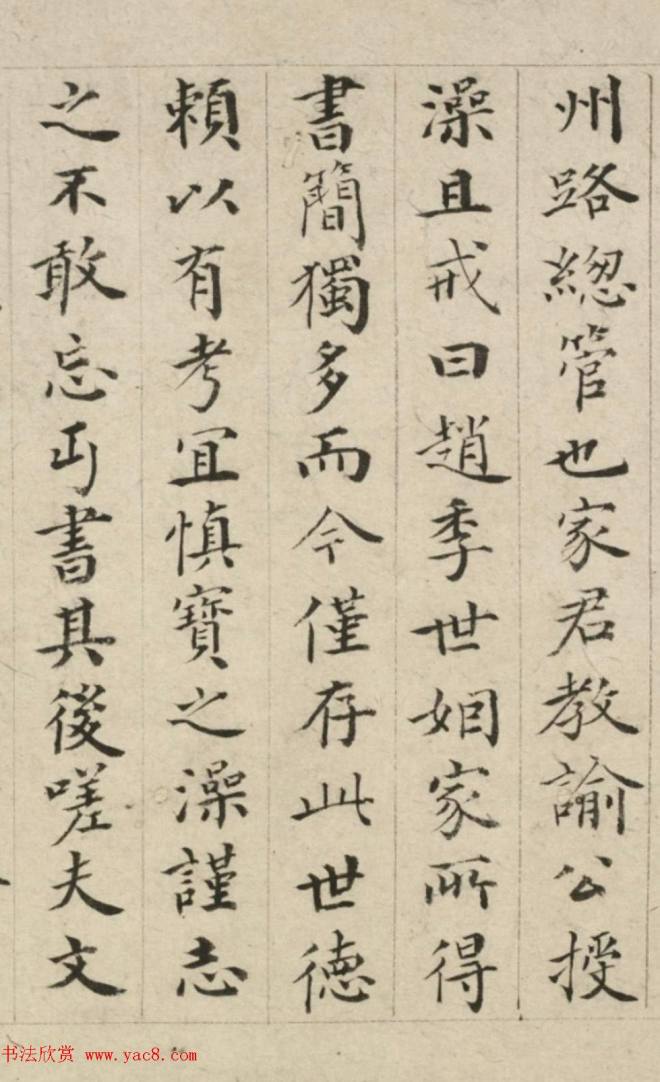 州路總管也家君教諭公授
澡且戒曰趙季世姻家所得
書簡獨多而今僅存此世德
賴以有考宜慎寶之澡謹志
之不敢忘丐書其後嗟夫文
书法欣赏 www.yac8.com